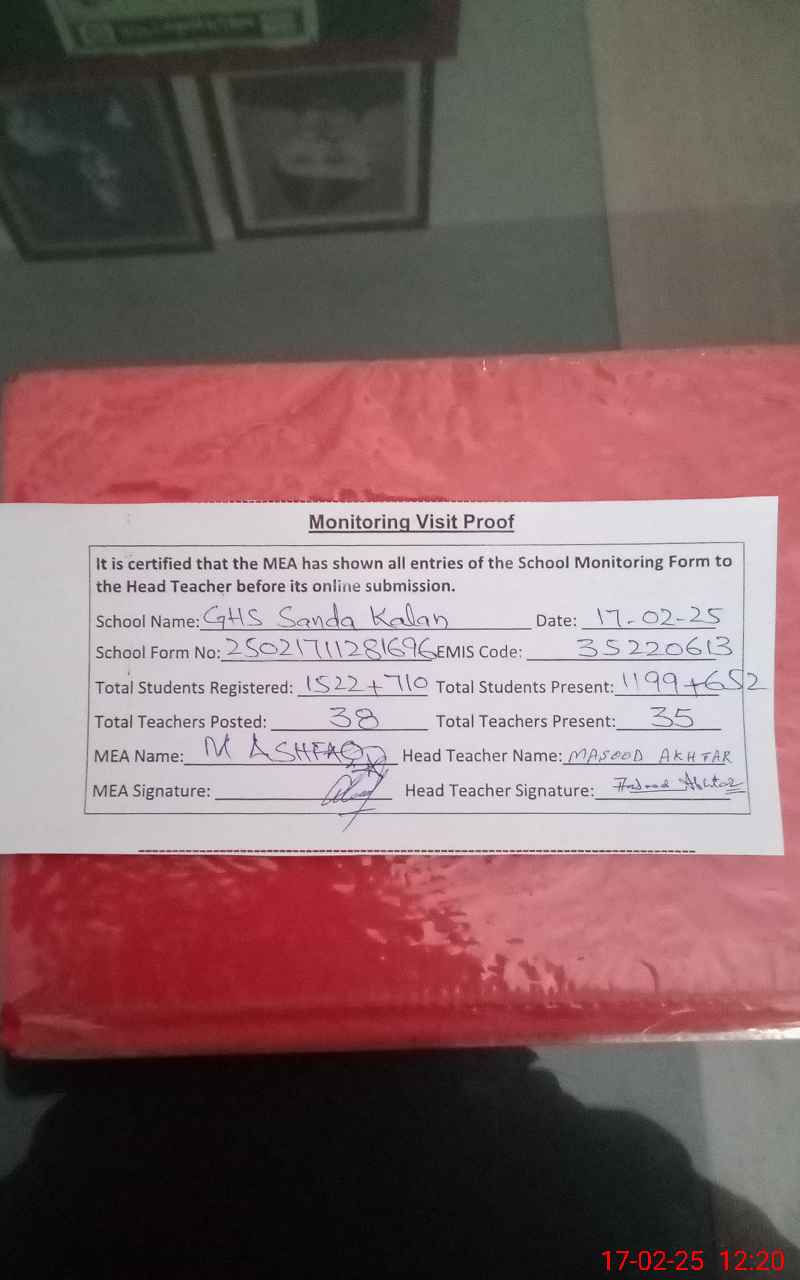 Monitoring Visit Proof
It is certified that the MEA has shown all entries of the School Monitoring Form to
the Head Teacher before its online submission.
School Name: GHS Sanda Kalan Date: 17-02-25
School Form No: 25021711281696 EMIS Code: 35220613
Total Students Registered: 1522+710 Total Students Present: 1199+652
Total Teachers Posted: 38 Total Teachers Present: 35
MEA Name: M ASHFAQ Head Teacher Name: MASOOD AKHTAR
MEA Signature: Head Teacher Signature: Masood Akhtar
17-02-25 12:20